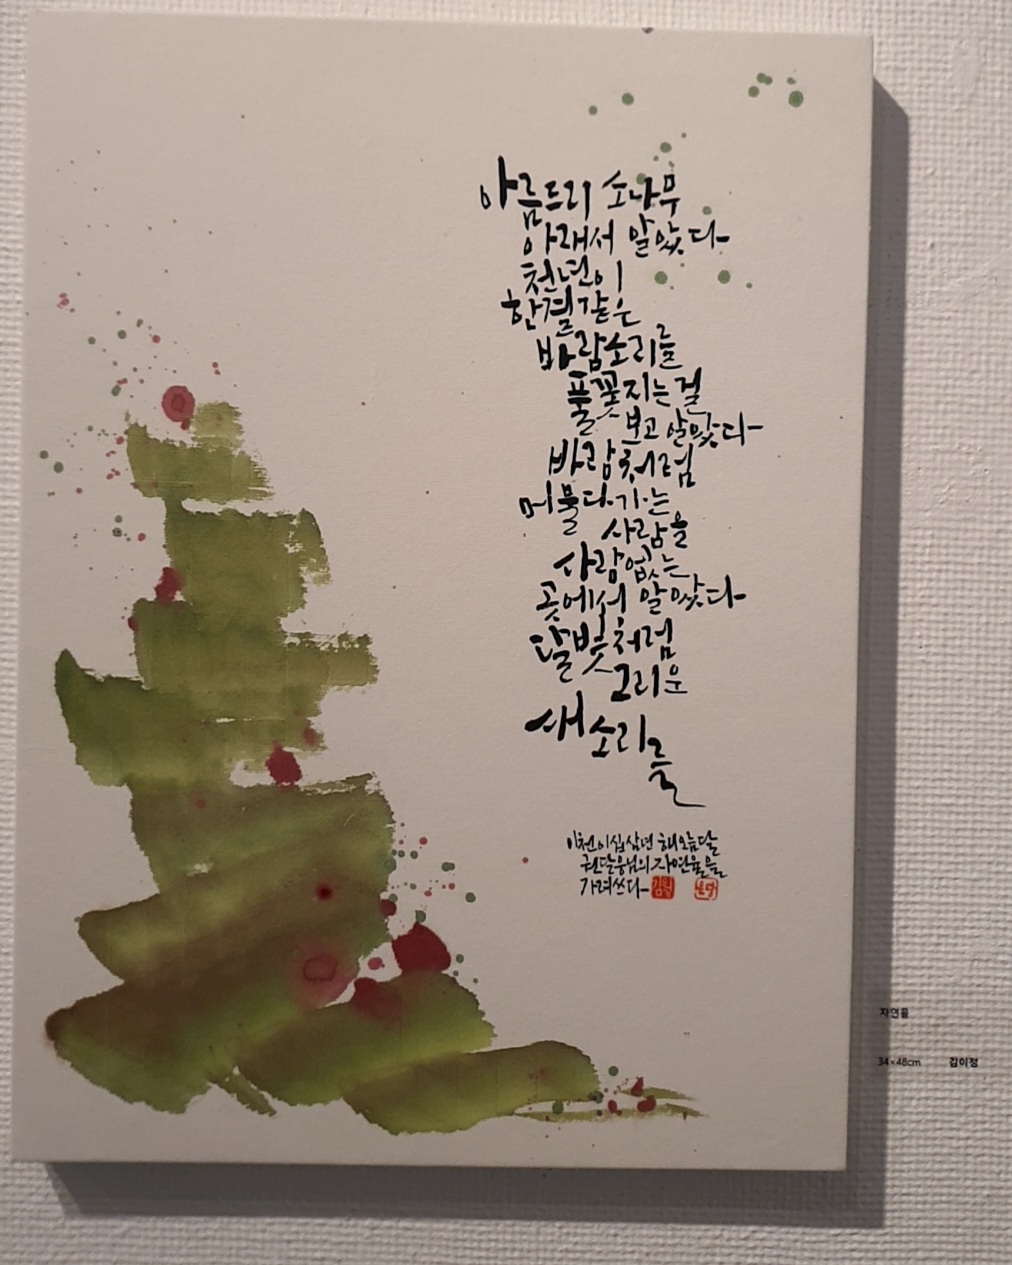 아름드리 소나무
아래서 알았다
천년이
한결같은
바람소리를
풀꽃 지는 걸
보고 알았다
바람처럼
머물다 가는
사람을
사람없는
곳에서 알았다
달빛처럼
그리운
새소리를
이천이십삼년 해오름달
권달웅님의 자연율을
가려쓰다
자연율
34×48cm 김이정